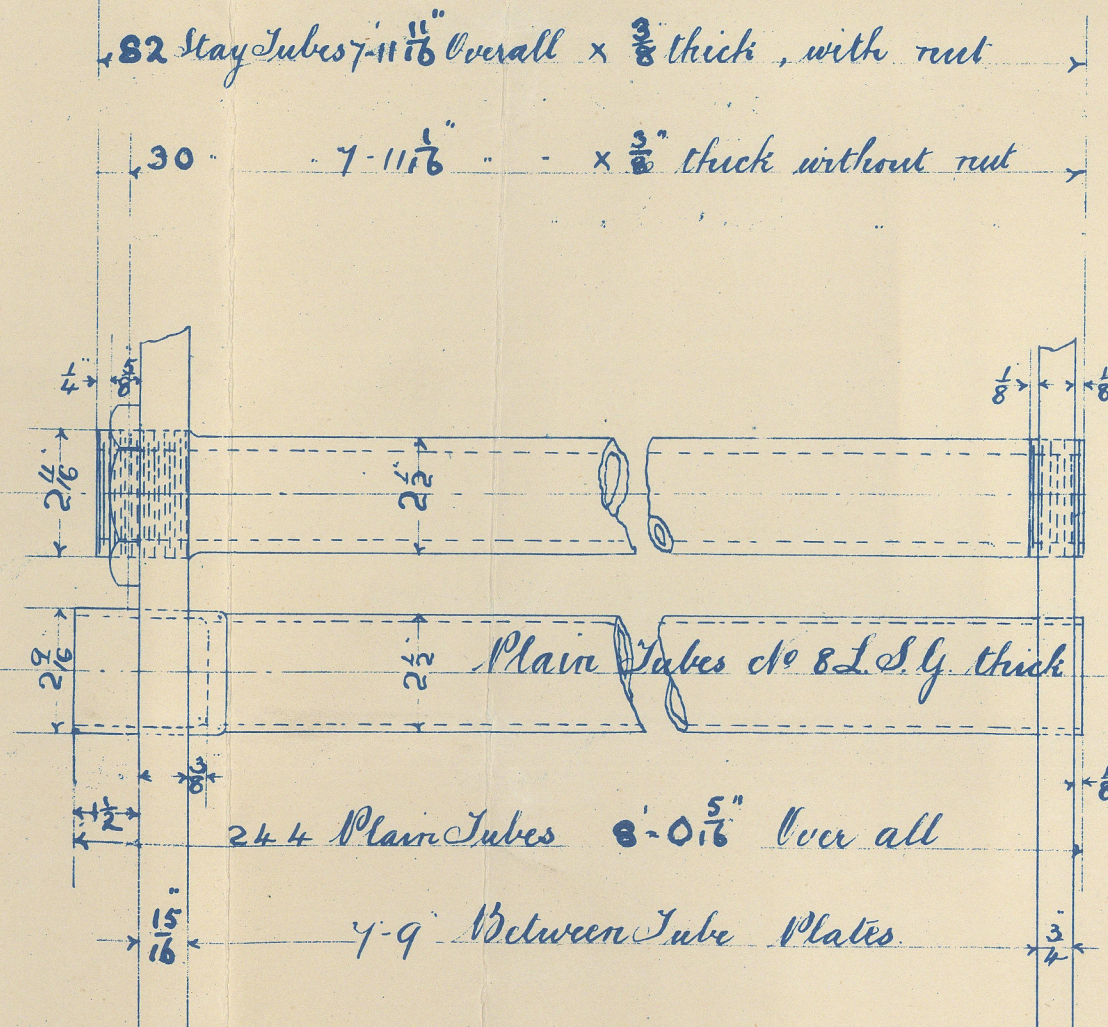 82 Stay Tubes 7'-11 11/16" Overall × 3/8" thick, with nut
30 " " 7-11 1/16" " - × 3/8" thick without nut
1/4" 5/8" 1/8 1/8
2 11/16 2 1/2"
2 9/16 2 1/2" Plain Tubes No 8 L.S.G. thick
3/8 1/8
1 1/2
244 Plain Tubes 8'-0 5/16" Over all
15/16" 7-9" Between Tube Plates. 3/4"